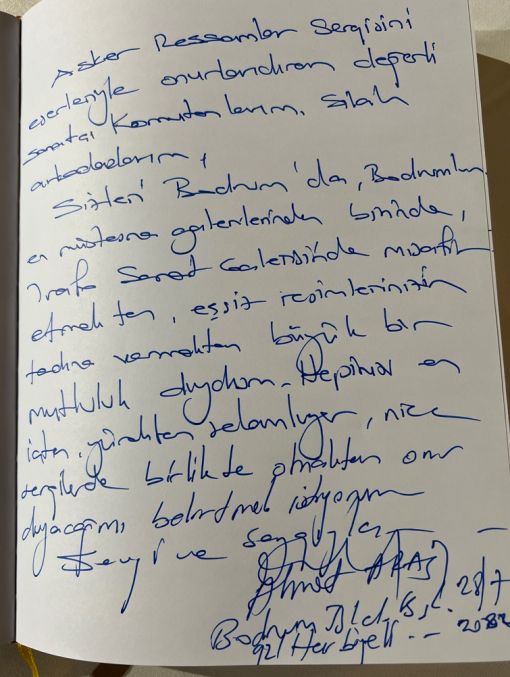 Asker Ressamlar Sergisini
eserleriyle onurlandıran değerli
sanatçı Komutanlarım, Silah
arkadaşlarım,
Sizleri Bodrum'da, Bodrumun
en müstesna galerilerinden birinde,
Sanat Galerisinde misafir
etmekten, eşsiz resimlerinizin
tadına varmaktan büyük bir
mutluluk duydum. Hepinizi en
içten, yürekten selamlıyor, nice
sergilerde birlikte olmaktan onur
duyacağımı belirtmek istiyorum
Sevgi ve Saygılar
Ahmet ARAS
Bodrum Bld. Bşk. 28/7